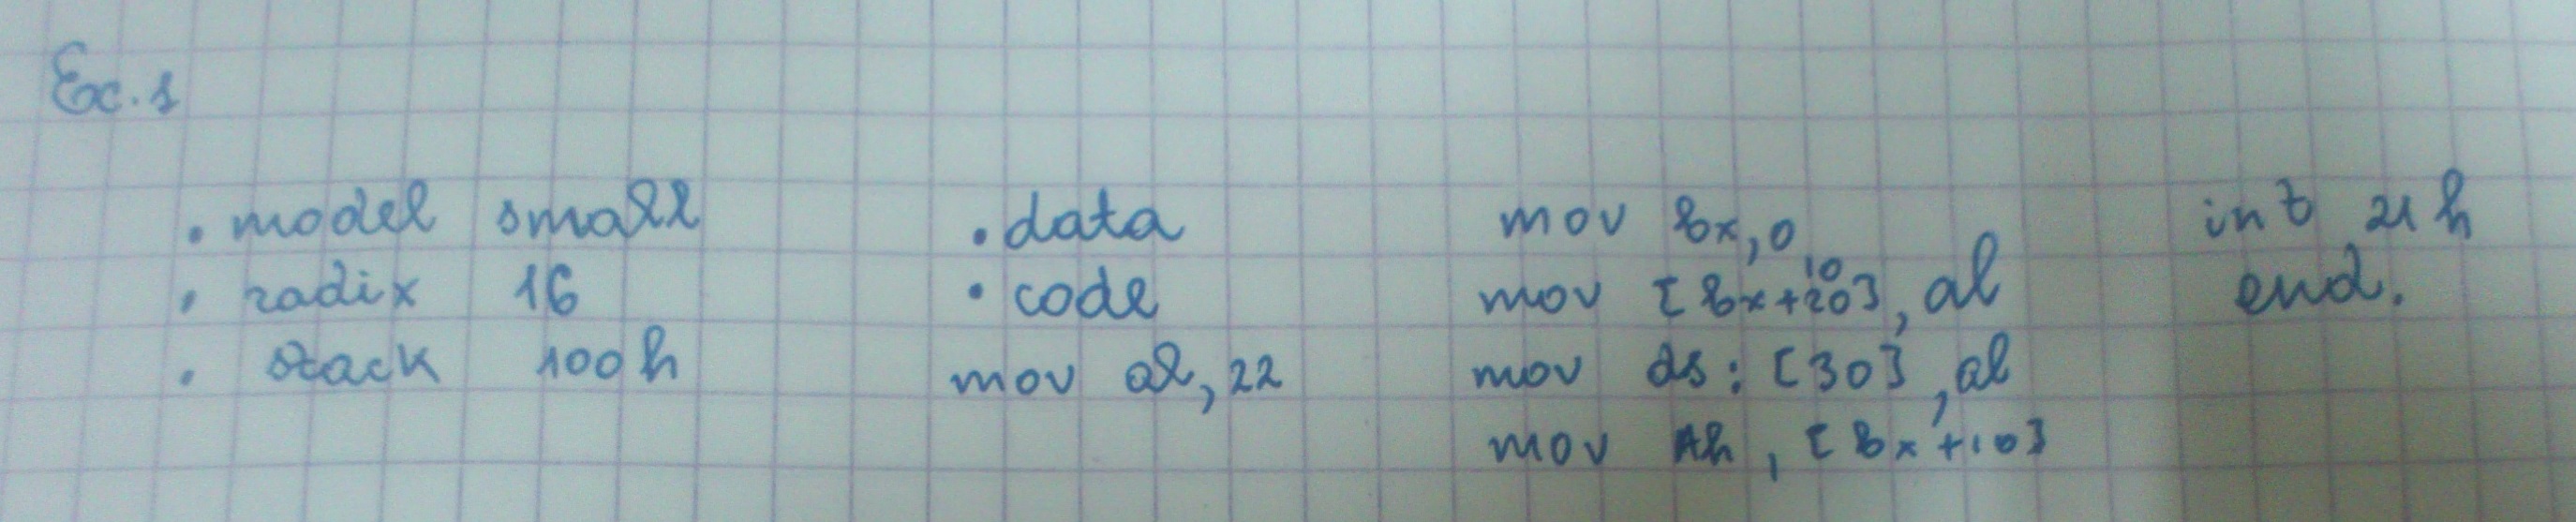 Ex. 1
. model small
. radix 16
. stack 100h
. data
. code
mov al, 22
mov bx, 0
10
mov [bx+20], al
mov ds: [30], al
mov Ah, [bx+10]
int 21h
end.